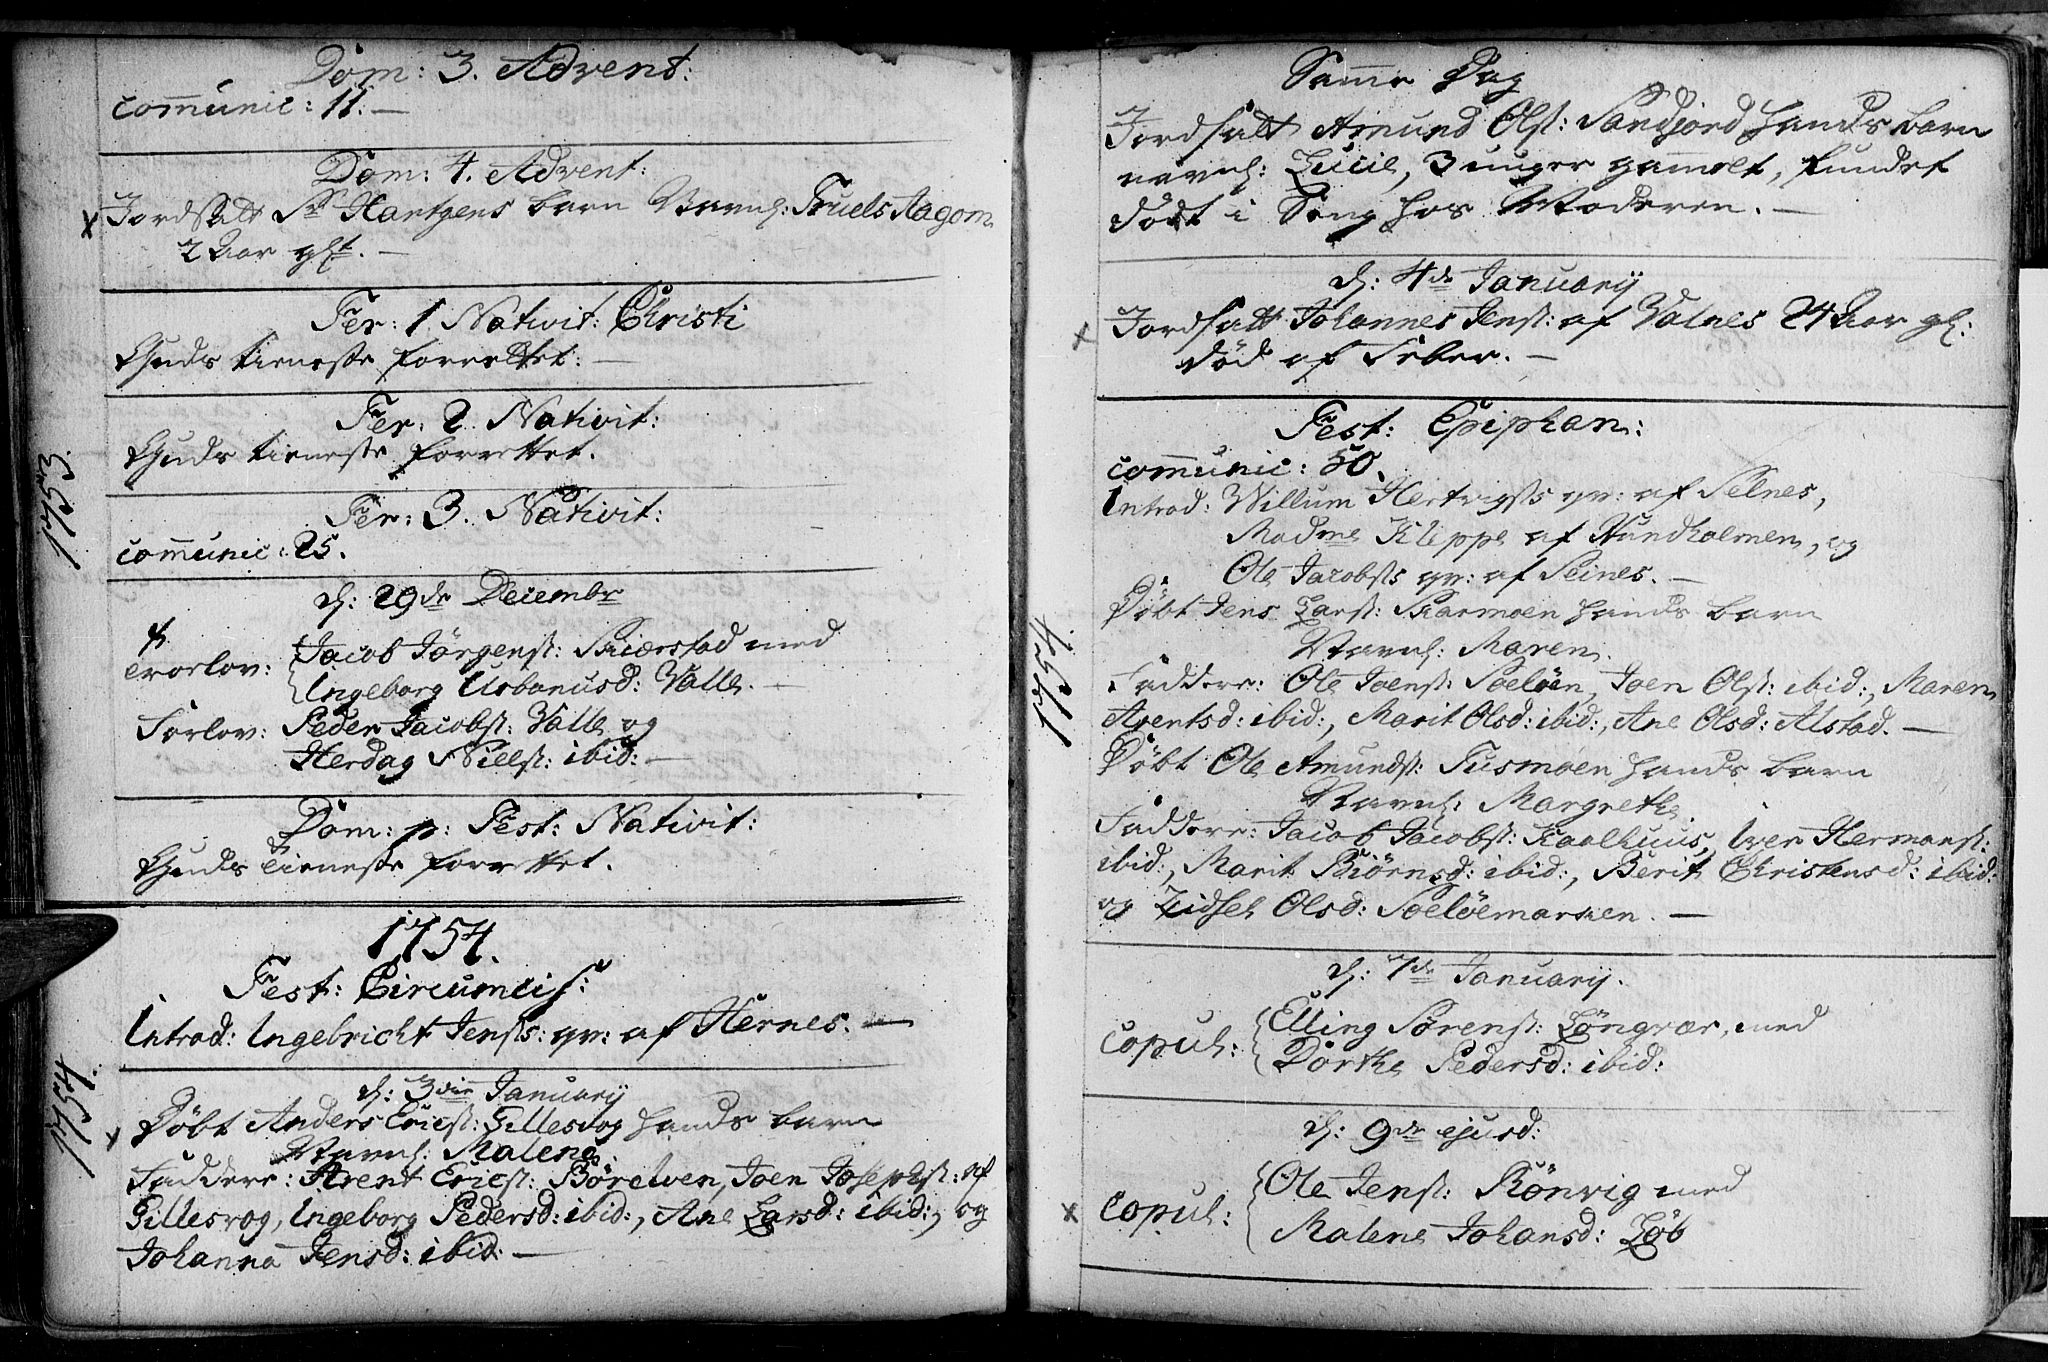 Dom: 3. Advent:
communic: 11. —
Dom: 4. Advent:
Jordfæst Sr Hantzens barn Navnl: Truels Aagom
2 Aar glt. —
Fer: 1 Nativit: Christi
Guds tieneste forrettet: —
Fer: 2. Nativit:
Guds tieneste forrettet.
1753
Fer: 3. Nativit:
communic: 25.
d: 29de Decembr
Trorlov: Jacob Jørgenst: Skierstad med
Ingeborg Urbanusd: Valle. —
Forlov: Peder Jacobst: Valle og
Herdag Nielst: ibid: —
Dom: p: Fest: Nativit:
Guds tieneste forrettet.
1754.
Fest: Circumcis:
Introd: Ingebricht Jensts: qv: af Hernes. —
1754.
d: 3die January
Døbt Anders Ericst: Gillesvog hands barn
Navnl: Malena.
Faddere: Arent Ericst: Børelven, Joen Josephst: af
Gillesvog, Ingeborg Pedersd: ibid:, Ane Larsd: ibid:, og
Johanna Jensd: ibid: —
Samme Dag
Jordfæst Amund Olst: Sandjord hands barn
navnl: Lucie, 3 uuger gammelt, fundet
dødt i Seng hos Moderen. —
d: 4de January
Jordfæst Johannes Jenst: af Valnes 24 Aar gl:
død af Feber. —
Fest: Epiphan:
communic: 50.
Introd: Willum Hertvigsts qv: af Selnes,
Madme Kleppe af Hundholmen, og
Ole Jacobsts qv: af Seines. —
1754.
Døbt Jens Larst: Skarmoen hands barn
Navnl: Maren.
Faddere: Ole Joenst: Soeløen, Joen Olst: ibid:, Maren
Arentsd: ibid:, Marit Olsd: ibid:, Ane Olsd: Alstad. —
Døbt Ole Amundst: Tusmoen hands barn
Navnl: Margrethe.
Faddere: Jacob Jacobst: Kaalhuus, Iver Hermanst:
ibid:, Marit Biørnsd: ibid:, Berit Christensd: ibid:
og Zidsel Olsd: Soeløemarken. —
d: 7de January.
Copul: Elling Sørenst: Løngvær, med
Dorthe Pedersd: ibid:
d: 9de ejusd:
Copul: Ole Jenst: Rønvig med
Malene Johansd: Løb